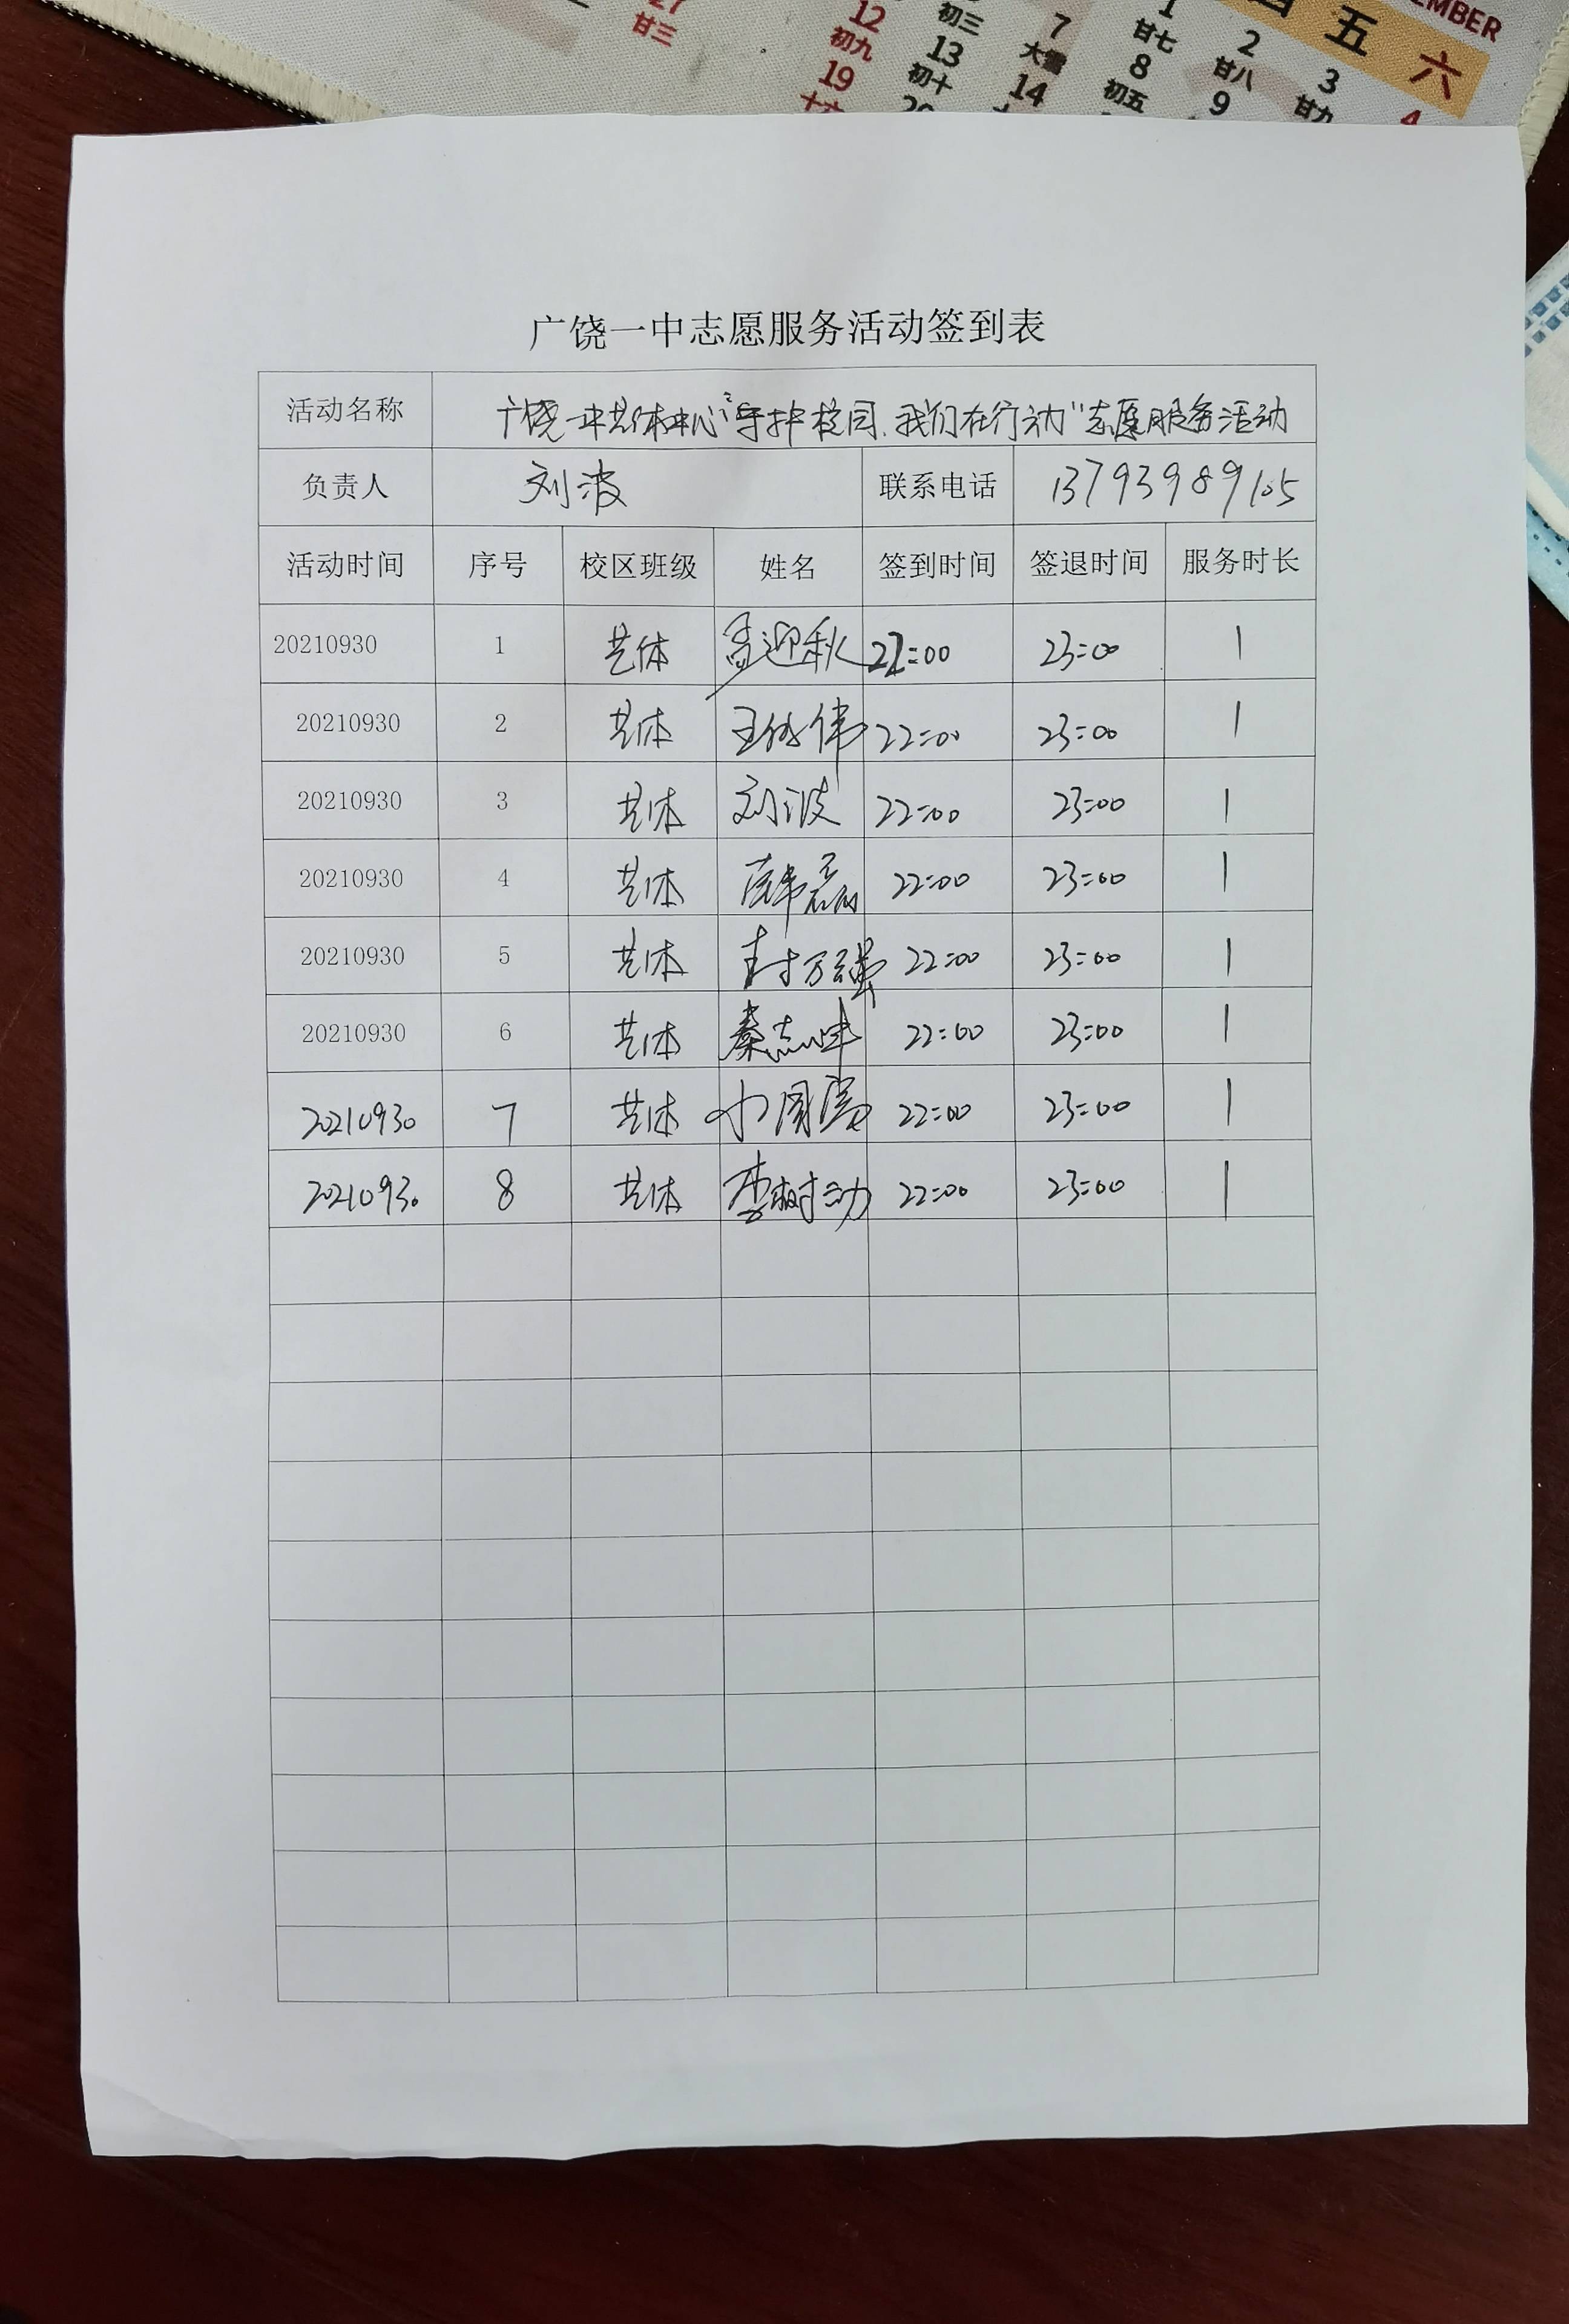 EMBER
五 六
27 12 7 1 2 3 4
廿三 初九 初三 大雪 廿七 廿八 廿九
19 13 14 8 9
初十 初五
广饶一中志愿服务活动签到表
活动名称 广饶一中艺体中心“守护校园、我们在行动”志愿服务活动
负责人 刘波 联系电话 13793989105
活动时间 序号 校区班级 姓名 签到时间 签退时间 服务时长
20210930 1 艺体 孟迎秋 22:00 23:00 1
20210930 2 艺体 22:00 23:00 1
20210930 3 艺体 刘波 22:00 23:00 1
20210930 4 艺体 22:00 23:00 1
20210930 5 艺体 封万强 22:00 23:00 1
20210930 6 艺体 22:00 23:00 1
20210930 7 艺体 22:00 23:00 1
20210930 8 艺体 李树动 22:00 23:00 1